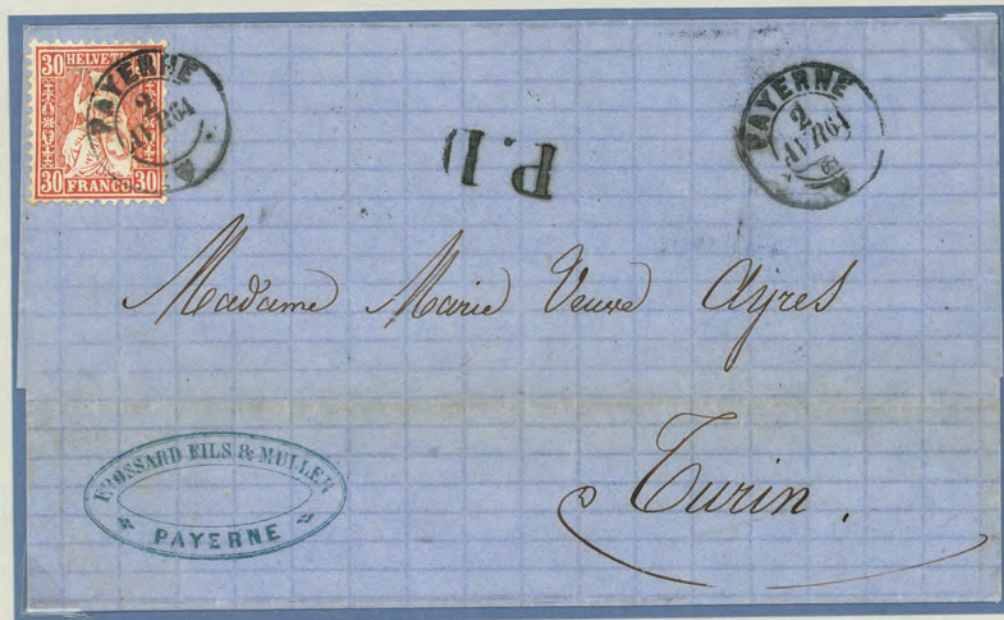 30 HELVETIA
30 FRANCO 30
PAYERNE
2
AVR 64
P.D
PAYERNE
2
AVR 64
Madame Marie Veuve Ayres
Turin.
FROSSARD FILS & MULLER
PAYERNE